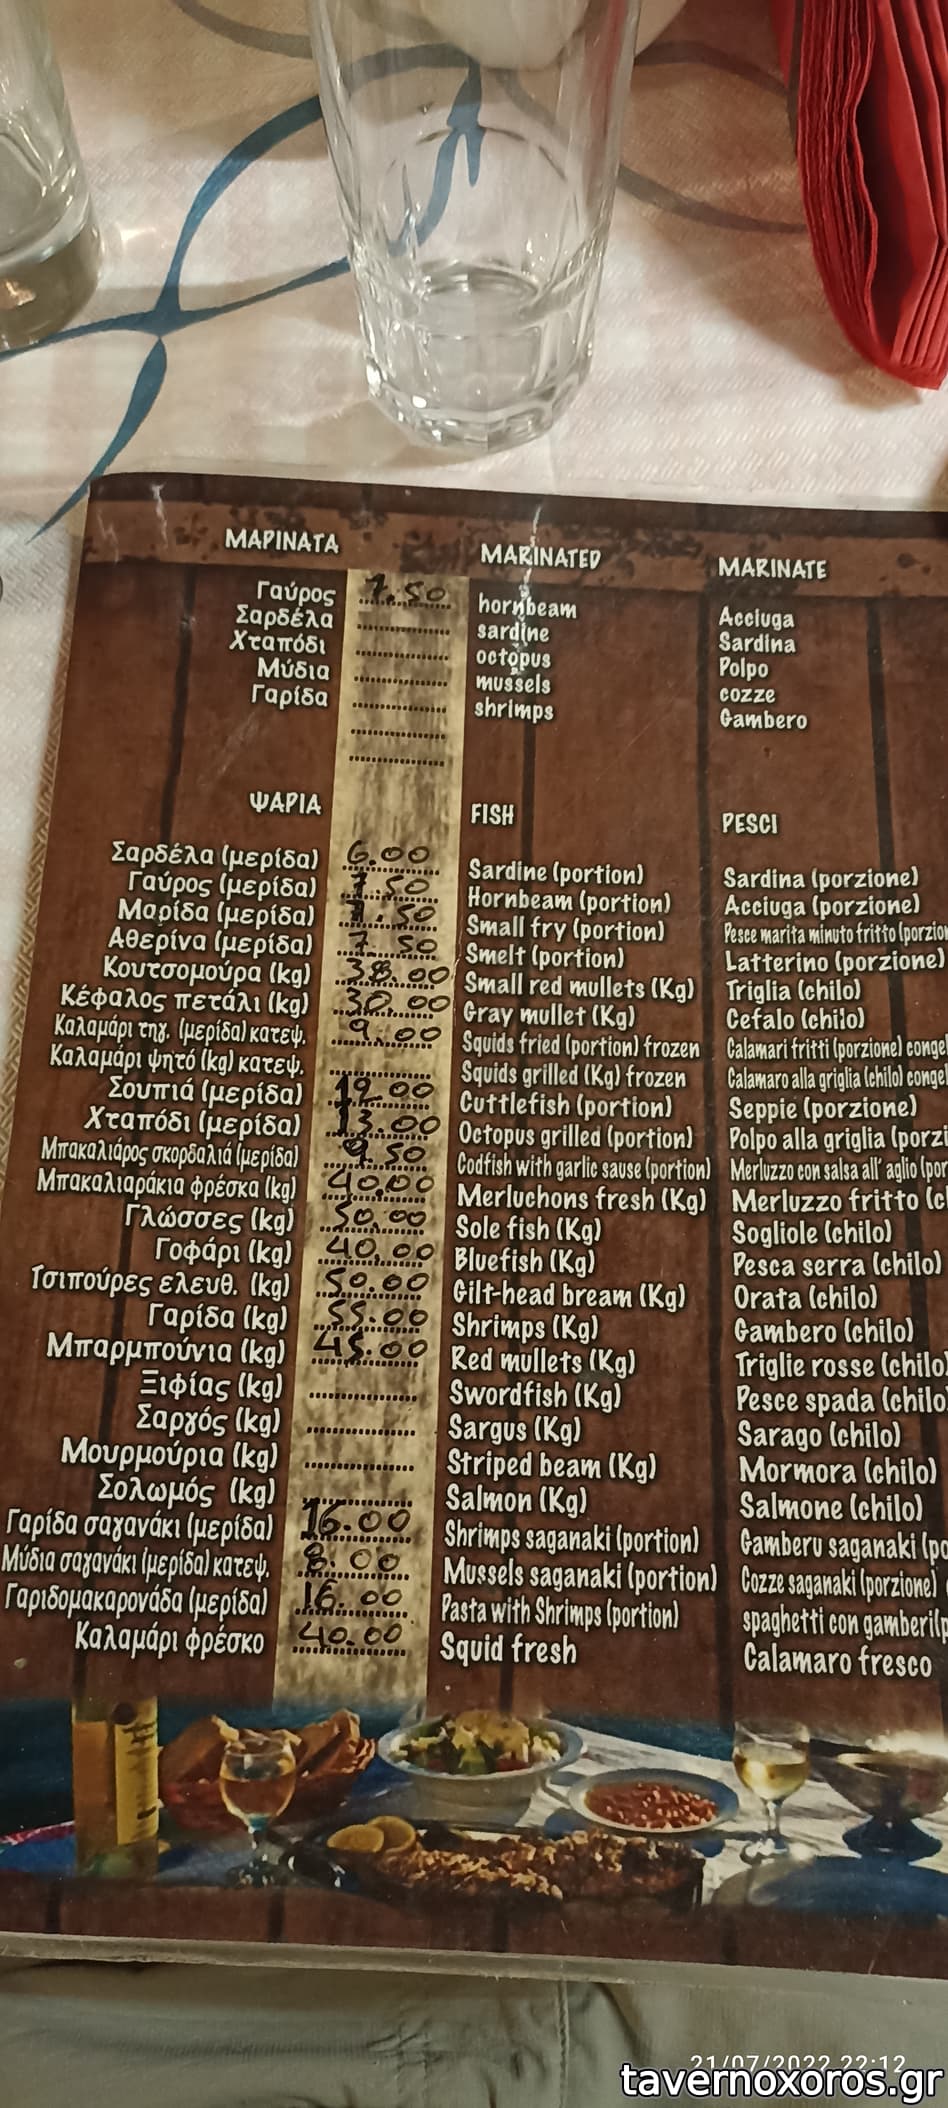 ΜΑΡΙΝΑΤΑ MARINATED MARINATE
Γαύρος 7.50 hornbeam Acciuga
Σαρδέλα sardine Sardina
Χταπόδι octopus Polpo
Μύδια mussels cozze
Γαρίδα shrimps Gambero
ΨΑΡΙΑ FISH PESCI
Σαρδέλα (μερίδα) 6.00 Sardine (portion) Sardina (porzione)
Γαύρος (μερίδα) 7.50 Hornbeam (portion) Acciuga (porzione)
Μαρίδα (μερίδα) 7.50 Small fry (portion) Pesce marita minuto fritto (porzion
Αθερίνα (μερίδα) 7.50 Smelt (portion) Latterino (porzione)
Κουτσομούρα (kg) 38.00 Small red mullets (Kg) Triglia (chilo)
Κέφαλος πετάλι (kg) 30.00 Gray mullet (Kg) Cefalo (chilo)
Καλαμάρι τηγ. (μερίδα) κατεψ. 9.00 Squids fried (portion) frozen Calamari fritti (porzione) congel
Καλαμάρι ψητό (kg) κατεψ. Squids grilled (Kg) frozen Calamaro alla griglia (chilo) congel
Σουπιά (μερίδα) 12.00 Cuttlefish (portion) Seppie (porzione)
Χταπόδι (μερίδα) 13.00 Octopus grilled (portion) Polpo alla griglia (porzi
Μπακαλιάρος σκορδαλιά (μερίδα) 9.50 Codfish with garlic sause (portion) Merluzzo con salsa all' aglio (por
Μπακαλιαράκια φρέσκα (kg) 40.00 Merluchons fresh (Kg) Merluzzo fritto (c
Γλώσσες (kg) 50.00 Sole fish (Kg) Sogliole (chilo)
Γοφάρι (kg) 40.00 Bluefish (Kg) Pesca serra (chilo)
Τσιπούρες ελευθ. (kg) 50.00 Gilt-head bream (Kg) Orata (chilo)
Γαρίδα (kg) 55.00 Shrimps (Kg) Gambero (chilo)
Μπαρμπούνια (kg) 45.00 Red mullets (Kg) Triglie rosse (chilo)
Ξιφίας (kg) Swordfish (Kg) Pesce spada (chilo
Σαργός (kg) Sargus (Kg) Sarago (chilo)
Μουρμούρια (kg) Striped beam (Kg) Mormora (chilo)
Σολωμός (kg) Salmon (Kg) Salmone (chilo)
Γαρίδα σαγανάκι (μερίδα) 16.00 Shrimps saganaki (portion) Gamberu saganaki (po
Μύδια σαγανάκι (μερίδα) κατεψ. 8.00 Mussels saganaki (portion) Cozze saganaki (porzione)
Γαριδομακαρονάδα (μερίδα) 16.00 Pasta with Shrimps (portion) spaghetti con gamberi(p
Καλαμάρι φρέσκο 40.00 Squid fresh Calamaro fresco
21/07/2022 22:12
tavernoxoros.gr